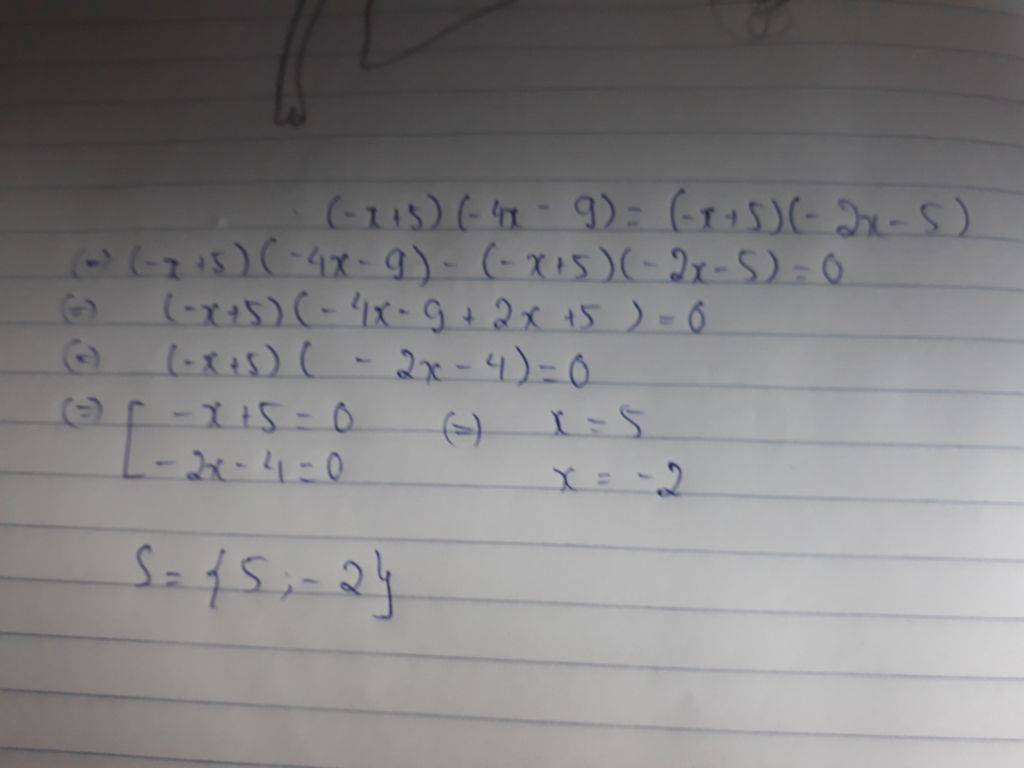 (-x+5)(-4x - 9) = (-x+5)(-2x-5)
(=) (-x+5)(-4x-9) - (-x+5)(-2x-5) = 0
(=) (-x+5)(-4x-9+2x+5) = 0
(=) (-x+5)( -2x-4) = 0
(=) [ -x+5=0 (=) x = 5
-2x-4=0 x = -2
S = {5;-2}